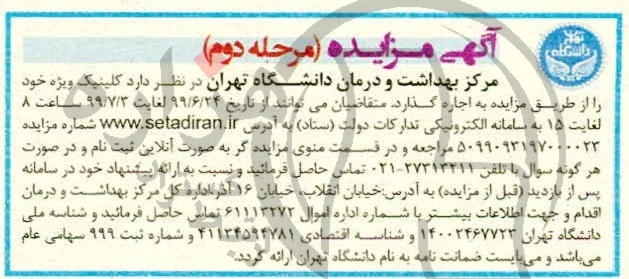 آگهی مزایده (مرحله دوم)
مرکز بهداشت و درمان دانشگاه تهران در نظر دارد کلینیک ویژه خود
را از طریق مزایده به اجاره گذارد. متقاضیان می توانند از تاریخ ۹۹/۶/۲۴ لغایت ۹۹/۷/۳ ساعت ۸
لغایت ۱۵ به سامانه الکترونیکی تدارکات دولت (ستاد) به آدرس www.setadiran.ir شماره مزایده
۵۰۹۹۰۹۳۱۹۷۰۰۰۰۲۳ مراجعه و در قسمت منوی مزایده گر به صورت آنلاین ثبت نام و در صورت
هر گونه سوال با تلفن ۲۷۳۱۳۲۱۱-۰۲۱ تماس حاصل فرمائید و نسبت به ارائه پیشنهاد خود در سامانه
پس از بازدید (قبل از مزایده) به آدرس:خیابان انقلاب، خیابان ۱۶ آذر،اداره کل مرکز بهداشت و درمان
اقدام و جهت اطلاعات بیشتر با شماره اداره اموال ۶۱۱۱۳۲۷۲ تماس حاصل فرمائید و شناسه ملی
دانشگاه تهران ۱۴۰۰۲۴۶۷۷۲۳ و شناسه اقتصادی ۴۱۱۳۴۵۹۴۷۸۱ و شماره ثبت ۹۹۹ سهامی عام
می‌باشد و می‌بایست ضمانت نامه به نام دانشگاه تهران ارائه گردد.